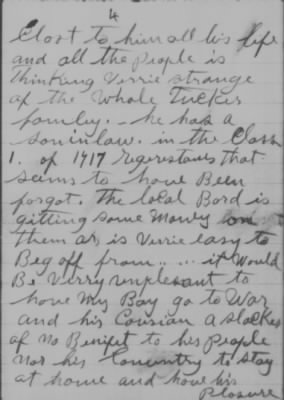 4
Clost to him all his life
and all the People is
thinking Verrie strange
of the Whole Tucker
famley. - he has a
soninlaw. in the Class
1. of 1917 regerestans that
seims to have Been
forgot. The local Bord is
gitting some Money on
them or is Verrie easy to
Beg off from.. ... it Would
Be Verry unplesant to
have My Boy go to War
and his Cousian a slacker
of no Benifet to his People
nor his Cowentry to stay
at home and have his
Plosure